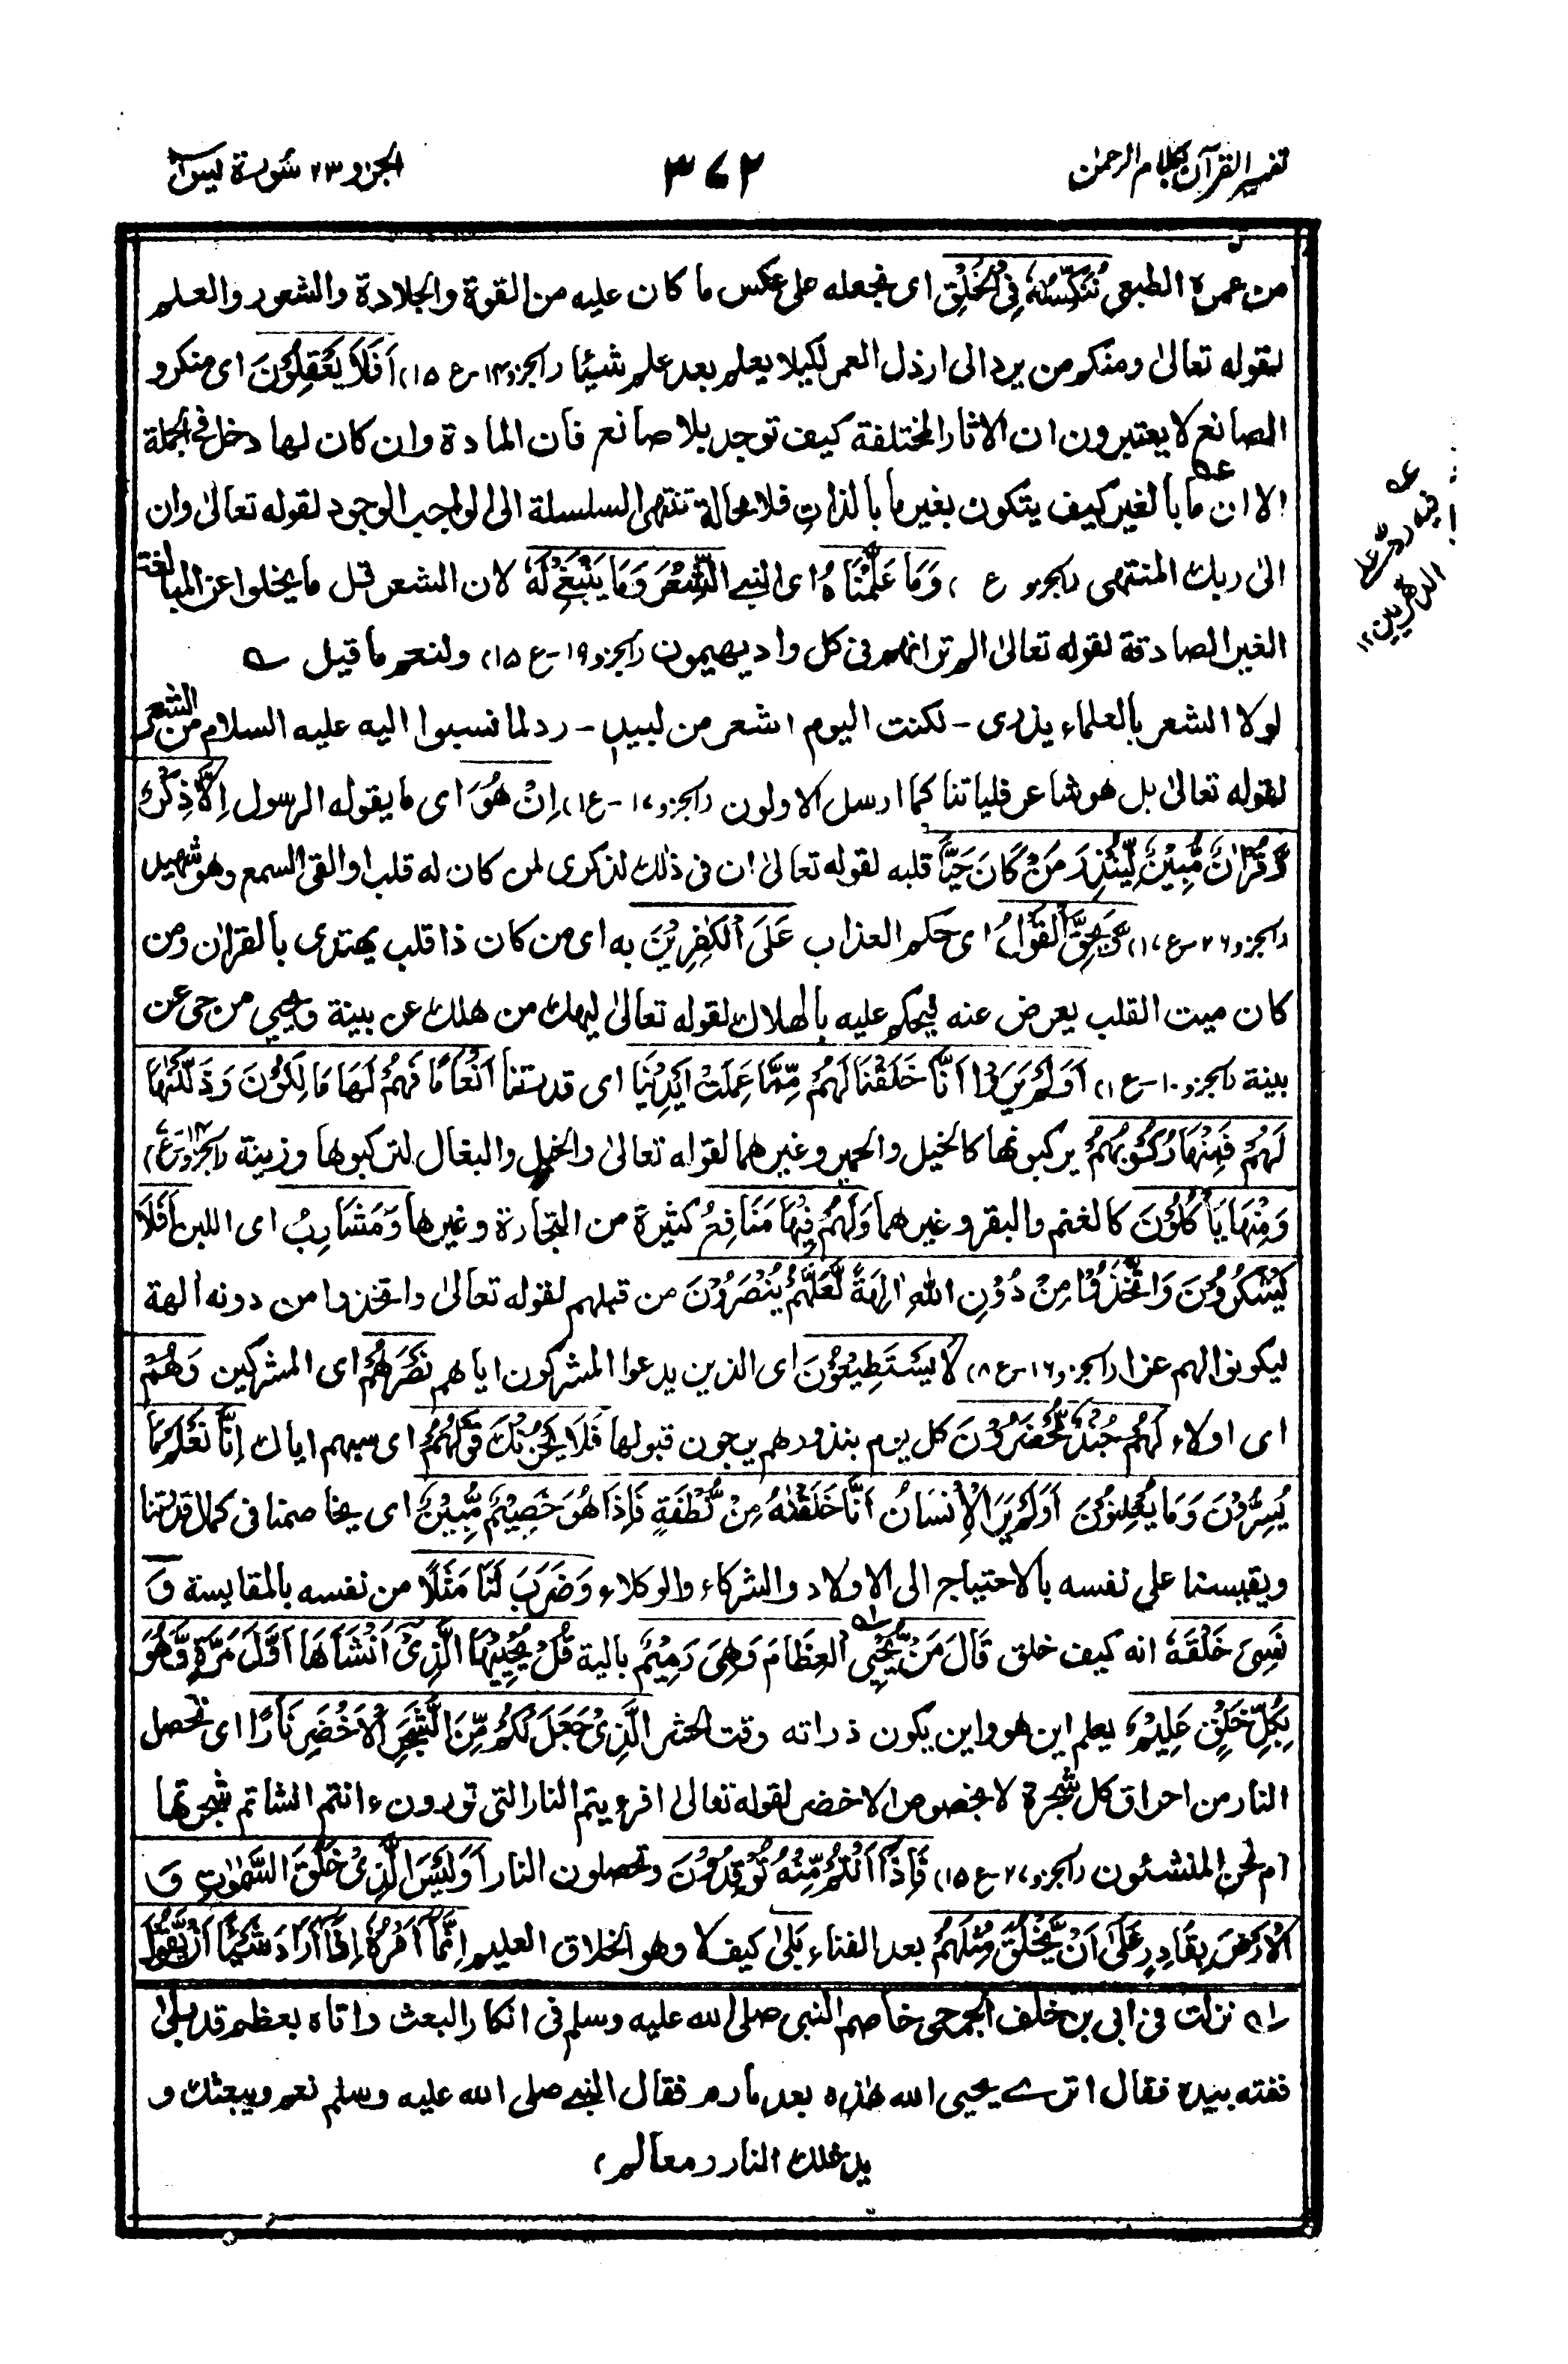 تفسير القرآن بكلام الرحمٰن
٣٧٢
الجزو ٢٣ سورة يٰسٓ
من عمره الطبعى نُنَكِّسْهُ فِى الْخَلْقِ اى نجعله على عكس ما كان عليه من القوة والجلادة والشعور والعلم
لقوله تعالىٰ ومنكم من يرد الى ارذل العمر لكيلا يعلم بعد علم شيئا (الجزو ١٤-ع ١٥) اَفَلَا يَعْقِلُوْنَ اى منكرو
الصانع لا يعتبرون ان الاثار المختلفة كيف توجد بلا صانع فان المادة وان كان لها دخل فى الجملة
الا ان ما بالغير كيف يتكون بغير ما بالذات فلا محالة تنتهى السلسلة الى الواجب الوجود لقوله تعالىٰ وان
الىٰ ربك المنتهى (الجزو ع ) وَمَا عَلَّمْنٰهُ اى النبى الشِّعْرَ وَمَا يَنْبَغِىْ لَهٗ لان الشعر قل ما يخلوا عن المبالغة
الغير الصادقة لقوله تعالىٰ الم تر انهم فى كل واد يهيمون (الجزو ١٩-ع ١٥) ولنعم ما قيل ؎
لولا الشعر بالعلماء يذرى - لكنت اليوم اشعر من لبيد - رد لما نسبوا اليه عليه السلام من الشعر
لقوله تعالىٰ بل هو شاعر فلياتنا كما ارسل الاولون (الجزو ١٧-ع ١) اِنْ هُوَ اى ما يقوله الرسول اِلَّا ذِكْرٌ
وَّقُرْاٰنٌ مُّبِيْنٌ لِّيُنْذِرَ مَنْ كَانَ حَيًّا قلبه لقوله تعالىٰ ان فى ذٰلك لذكرى لمن كان له قلب او القى السمع وهو شهيد
(الجزو ٢٦-ع ١٧) وَيَحِقَّ الْقَوْلُ اى حكم العذاب عَلَى الْكٰفِرِيْنَ به اى من كان ذا قلب يهتدى بالقران ومن
كان ميت القلب يعرض عنه ليحكم عليه بالهلاك لقوله تعالىٰ ليهلك من هلك عن بينة ويحيى من حى عن
بينة (الجزو ١٠-ع ١) اَوَلَمْ يَرَوْا اَنَّا خَلَقْنَا لَهُمْ مِّمَّا عَمِلَتْ اَيْدِيْنَا اى قدرتنا اَنْعَامًا فَهُمْ لَهَا مَالِكُوْنَ وَذَلَّلْنٰهَا
لَهُمْ فَمِنْهَا رَكُوْبُهُمْ يركبونها كالخيل والحمير وغيرهما لقوله تعالىٰ والخيل والبغال لتركبوها وزينة (الجزو ١٤-ع ٧)
وَمِنْهَا يَاْكُلُوْنَ كالغنم والبقر وغيرهما وَلَهُمْ فِيْهَا مَنَافِعُ كثيرة من التجارة وغيرها وَمَشَارِبُ اى اللبن اَفَلَا
يَشْكُرُوْنَ وَاتَّخَذُوْا مِنْ دُوْنِ اللّٰهِ اٰلِهَةً لَّعَلَّهُمْ يُنْصَرُوْنَ من قبلهم لقوله تعالىٰ واتخذوا من دونه الهة
ليكونوا لهم عزا (الجزو ١٦-ع ٨) لَا يَسْتَطِيْعُوْنَ اى الذين يدعوا المشركون اياهم نَصْرَهُمْ اى المشركين وَهُمْ
اى اولاء لَهُمْ جُنْدٌ مُّحْضَرُوْنَ كل يوم بنذورهم يرجون قبولها فَلَا يَحْزُنْكَ قَوْلُهُمْ اى سبهم اياك اِنَّا نَعْلَمُ مَا
يُسِرُّوْنَ وَمَا يُعْلِنُوْنَ اَوَلَمْ يَرَ الْاِنْسَانُ اَنَّا خَلَقْنٰهُ مِنْ نُّطْفَةٍ فَاِذَا هُوَ خَصِيْمٌ مُّبِيْنٌ اى يخاصمنا فى كمال قدرتنا
ويقيسنا على نفسه بالاحتياج الى الاولاد والشركاء والوكلاء وَضَرَبَ لَنَا مَثَلًا من نفسه بالمقايسة وَ
نَسِىَ خَلْقَهٗ انه كيف خلق قَالَ مَنْ يُّحْيِى الْعِظَامَ وَهِىَ رَمِيْمٌ بالية قُلْ يُحْيِيْهَا الَّذِىْٓ اَنْشَاَهَا اَوَّلَ مَرَّةٍ وَّهُوَ
بِكُلِّ خَلْقٍ عَلِيْمٌ يعلم اين هو واين يكون ذراته وقت الحشر الَّذِىْ جَعَلَ لَكُمْ مِّنَ الشَّجَرِ الْاَخْضَرِ نَارًا اى تحصل
النار من احراق كل شجرة لا بخصوص الاخضر لقوله تعالىٰ افرءيتم النار التى تورون ءانتم انشاتم شجرتها
ام نحن المنشئون (الجزو ٢٧-ع ١٥) فَاِذَآ اَنْتُمْ مِّنْهُ تُوْقِدُوْنَ وتحصلون النار اَوَلَيْسَ الَّذِىْ خَلَقَ السَّمٰوٰتِ وَ
الْاَرْضَ بِقَادِرٍ عَلٰٓى اَنْ يَّخْلُقَ مِثْلَهُمْ بعد الفناء بَلٰى كيف لا وهو الخلاق العليم اِنَّمَآ اَمْرُهٗٓ اِذَآ اَرَادَ شَيْئًا اَنْ يَّقُوْلَ
(١) نزلت فى ابى بن خلف الجمحى خاصم النبى صلى الله عليه وسلم فى انكار البعث واتاه بعظم قد بلى
ففته بيده فقال اترى يحيى الله هٰذه بعد ما رم فقال النبى صلى الله عليه وسلم نعم ويبعثك و
يدخلك النار (معالم)
عه
فيه رد على
الدهريين ١٢